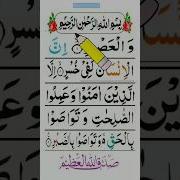 بِسْمِ اللهِ الرَّحْمٰنِ الرَّحِيْمِ
وَ الْعَصْرِ اِنَّ
الْاِنْسَانَ لَفِیْ خُسْرٍ اِلَّا
الَّذِیْنَ اٰمَنُوْا وَعَمِلُوا
الصّٰلِحٰتِ وَ تَوَاصَوْا
بِالْحَقِّ وَ تَوَاصَوْا بِالصَّبْرِ
صَدَقَ اللهُ الْعَظِيْمُ